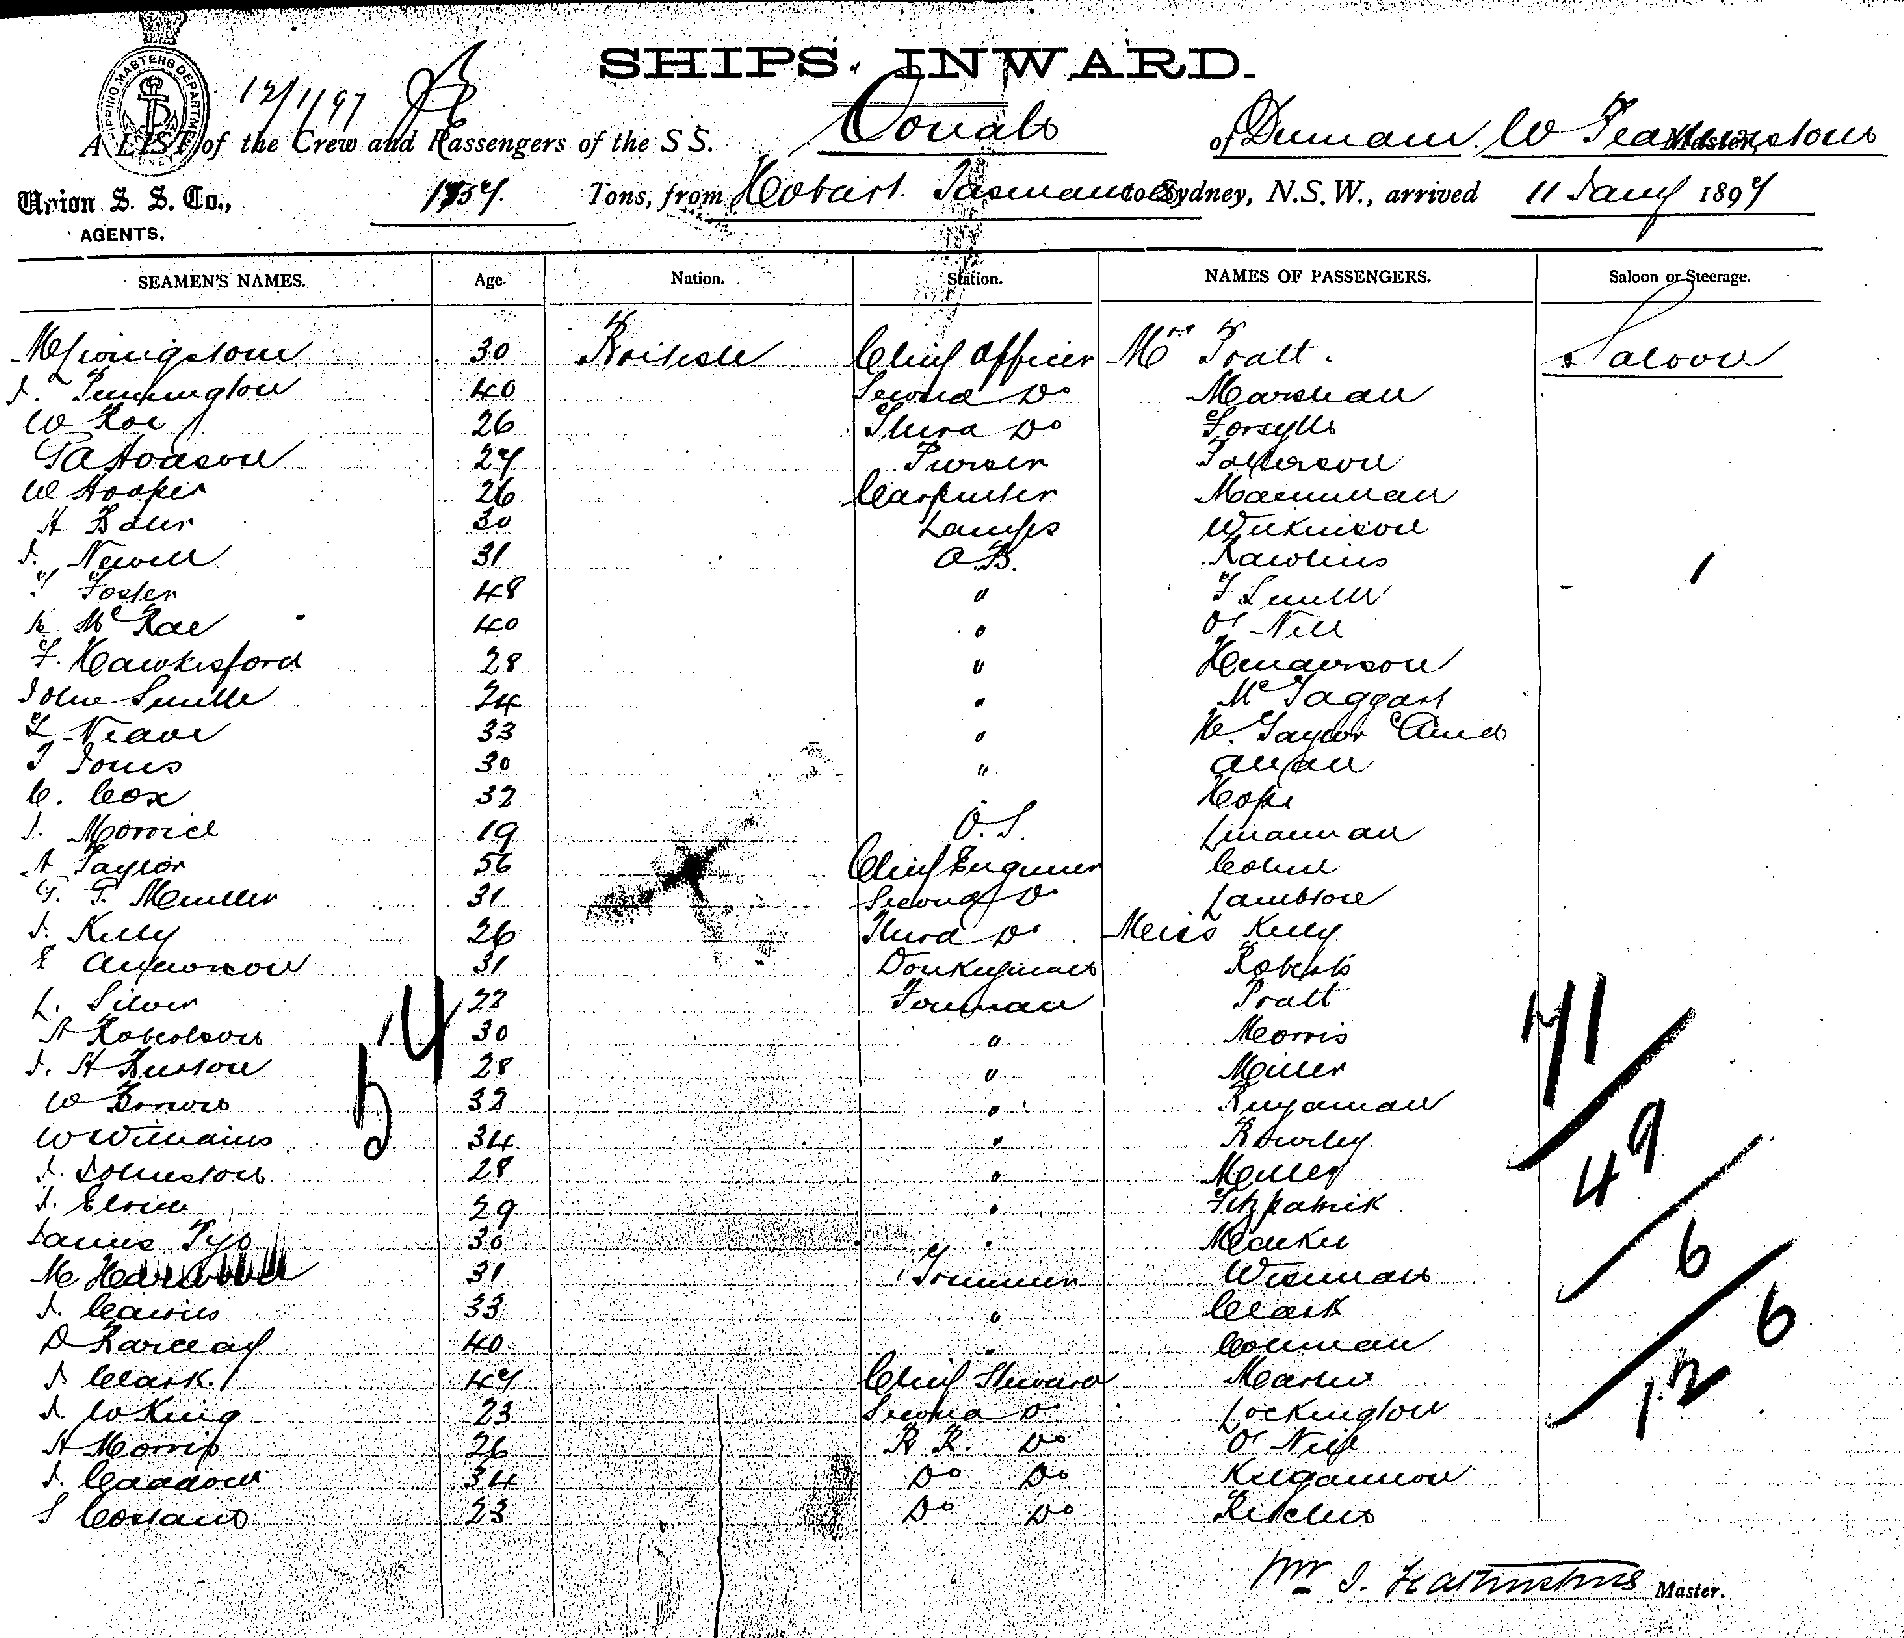 SHIPS INWARD.
SHIPPING MASTERS DEPARTMENT
12/1/97
A LIST of the Crew and Passengers of the S S. Oonah of Dunedin W Featherstone Master,
Union S. S. Co., AGENTS. 1757 Tons, from Hobart Tasmania to Sydney, N.S.W., arrived 11 Jany 1897
SEAMEN'S NAMES. Age. Nation. Station. NAMES OF PASSENGERS. Saloon or Steerage.
M Livingstone 30 British Chief Officer Mrs Pratt Saloon
J. Pennington 40 Second Do Marshall
W Roe 26 Third Do Forsyth
27 Purser Patterson
W Hooper 26 Carpenter
A 30 Lamps Wilkinson
J. Newell 31 A.B. Rawlins 1
T Foster 48 " T Smith
K McRae 40 " O'Neil
F. Hawkesford 28 " Henderson
John Smith 24 " McTaggart
T Neave 33 " H. Taylor
T Jones 30 " Allan
C. Cox 32 Hope
J. Morrice 19 O.S.
A Taylor 56 Chief Engineer Cohen
T. P. Mueller 31 Second Do
J. Kelly 26 Third Do Miss Kelly
E Anderson 31 Donkeyman Roberts
L. Silver 22 Fireman Pratt
A Robertson 30 " Morris
J. A Burton 28 " Miller
W Brown 32 " Benjamin
W Williams 34 " Rowley
J. Johnston 28 "
J. 29 " Fitzpatrick
James 30 "
M 31 Trimmer Wiseman
J. Cairns 33 " Clark
D Barclay 40 " Colman
J Clark 47 Chief Steward Martin
J. W King 23 Second Do Lockington
A Morris 26 Do O'Neil
J. 34 Do Do Kilgannon
S 23 Do Do
54
71
49
6
6
12
Wm J. Featherstone Master.